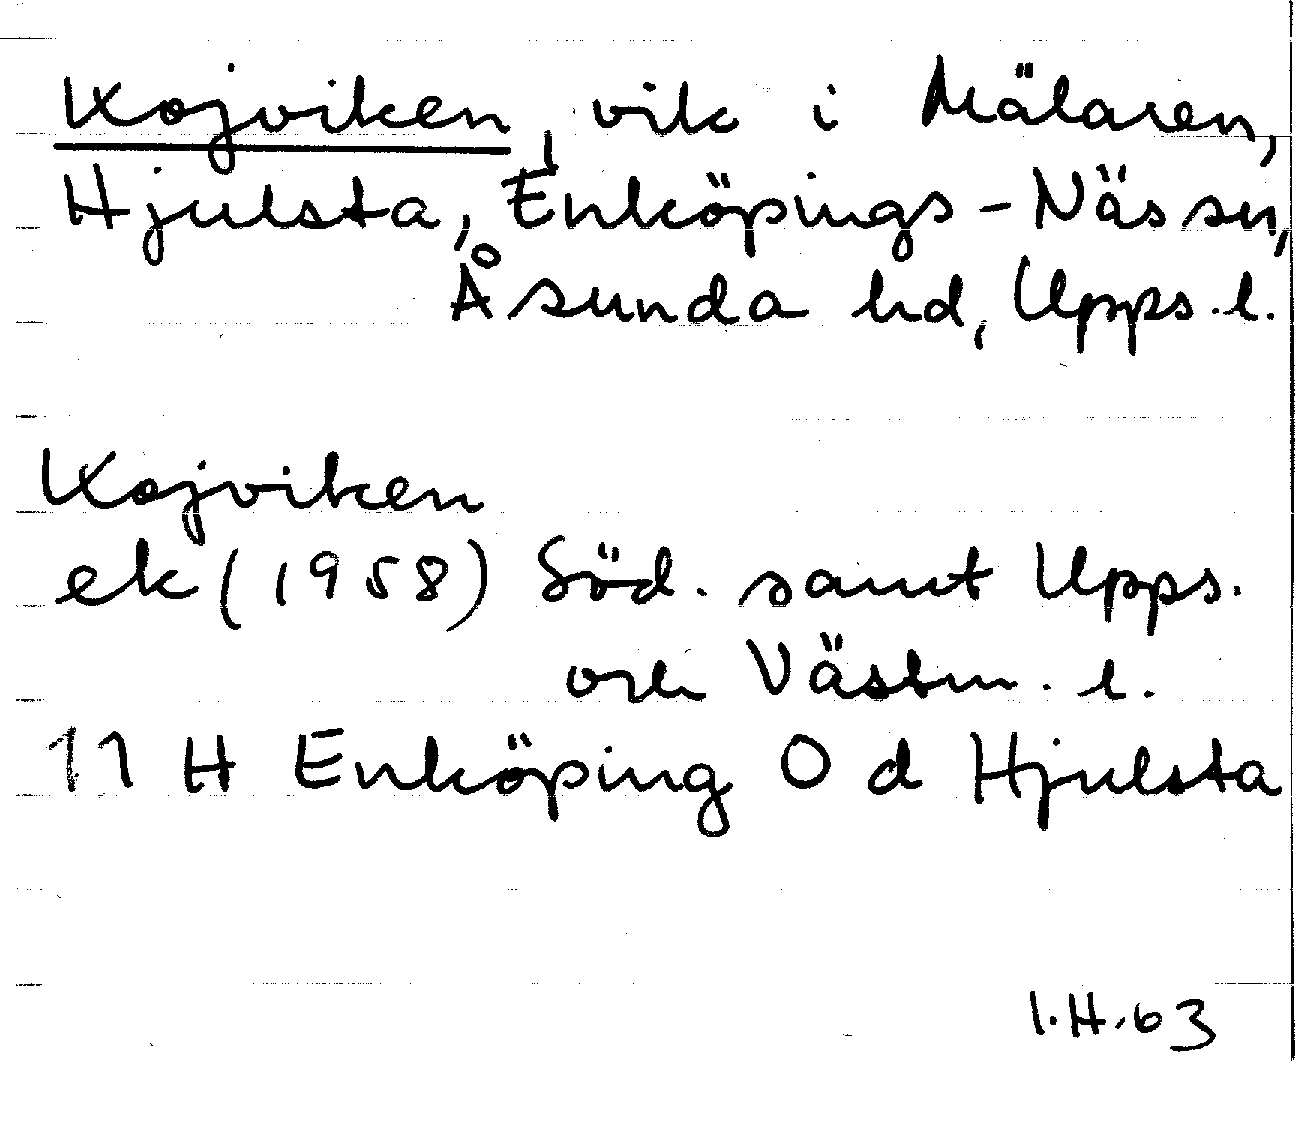 Kojviken, vik i Mälaren,
Hjulsta, Enköpings-Näs sn,
Åsunda hd, Upps. l.
Kojviken
ek (1958) Söd. samt Upps.
och Västm. l.
11 H Enköping O d Hjulsta
I.H.63